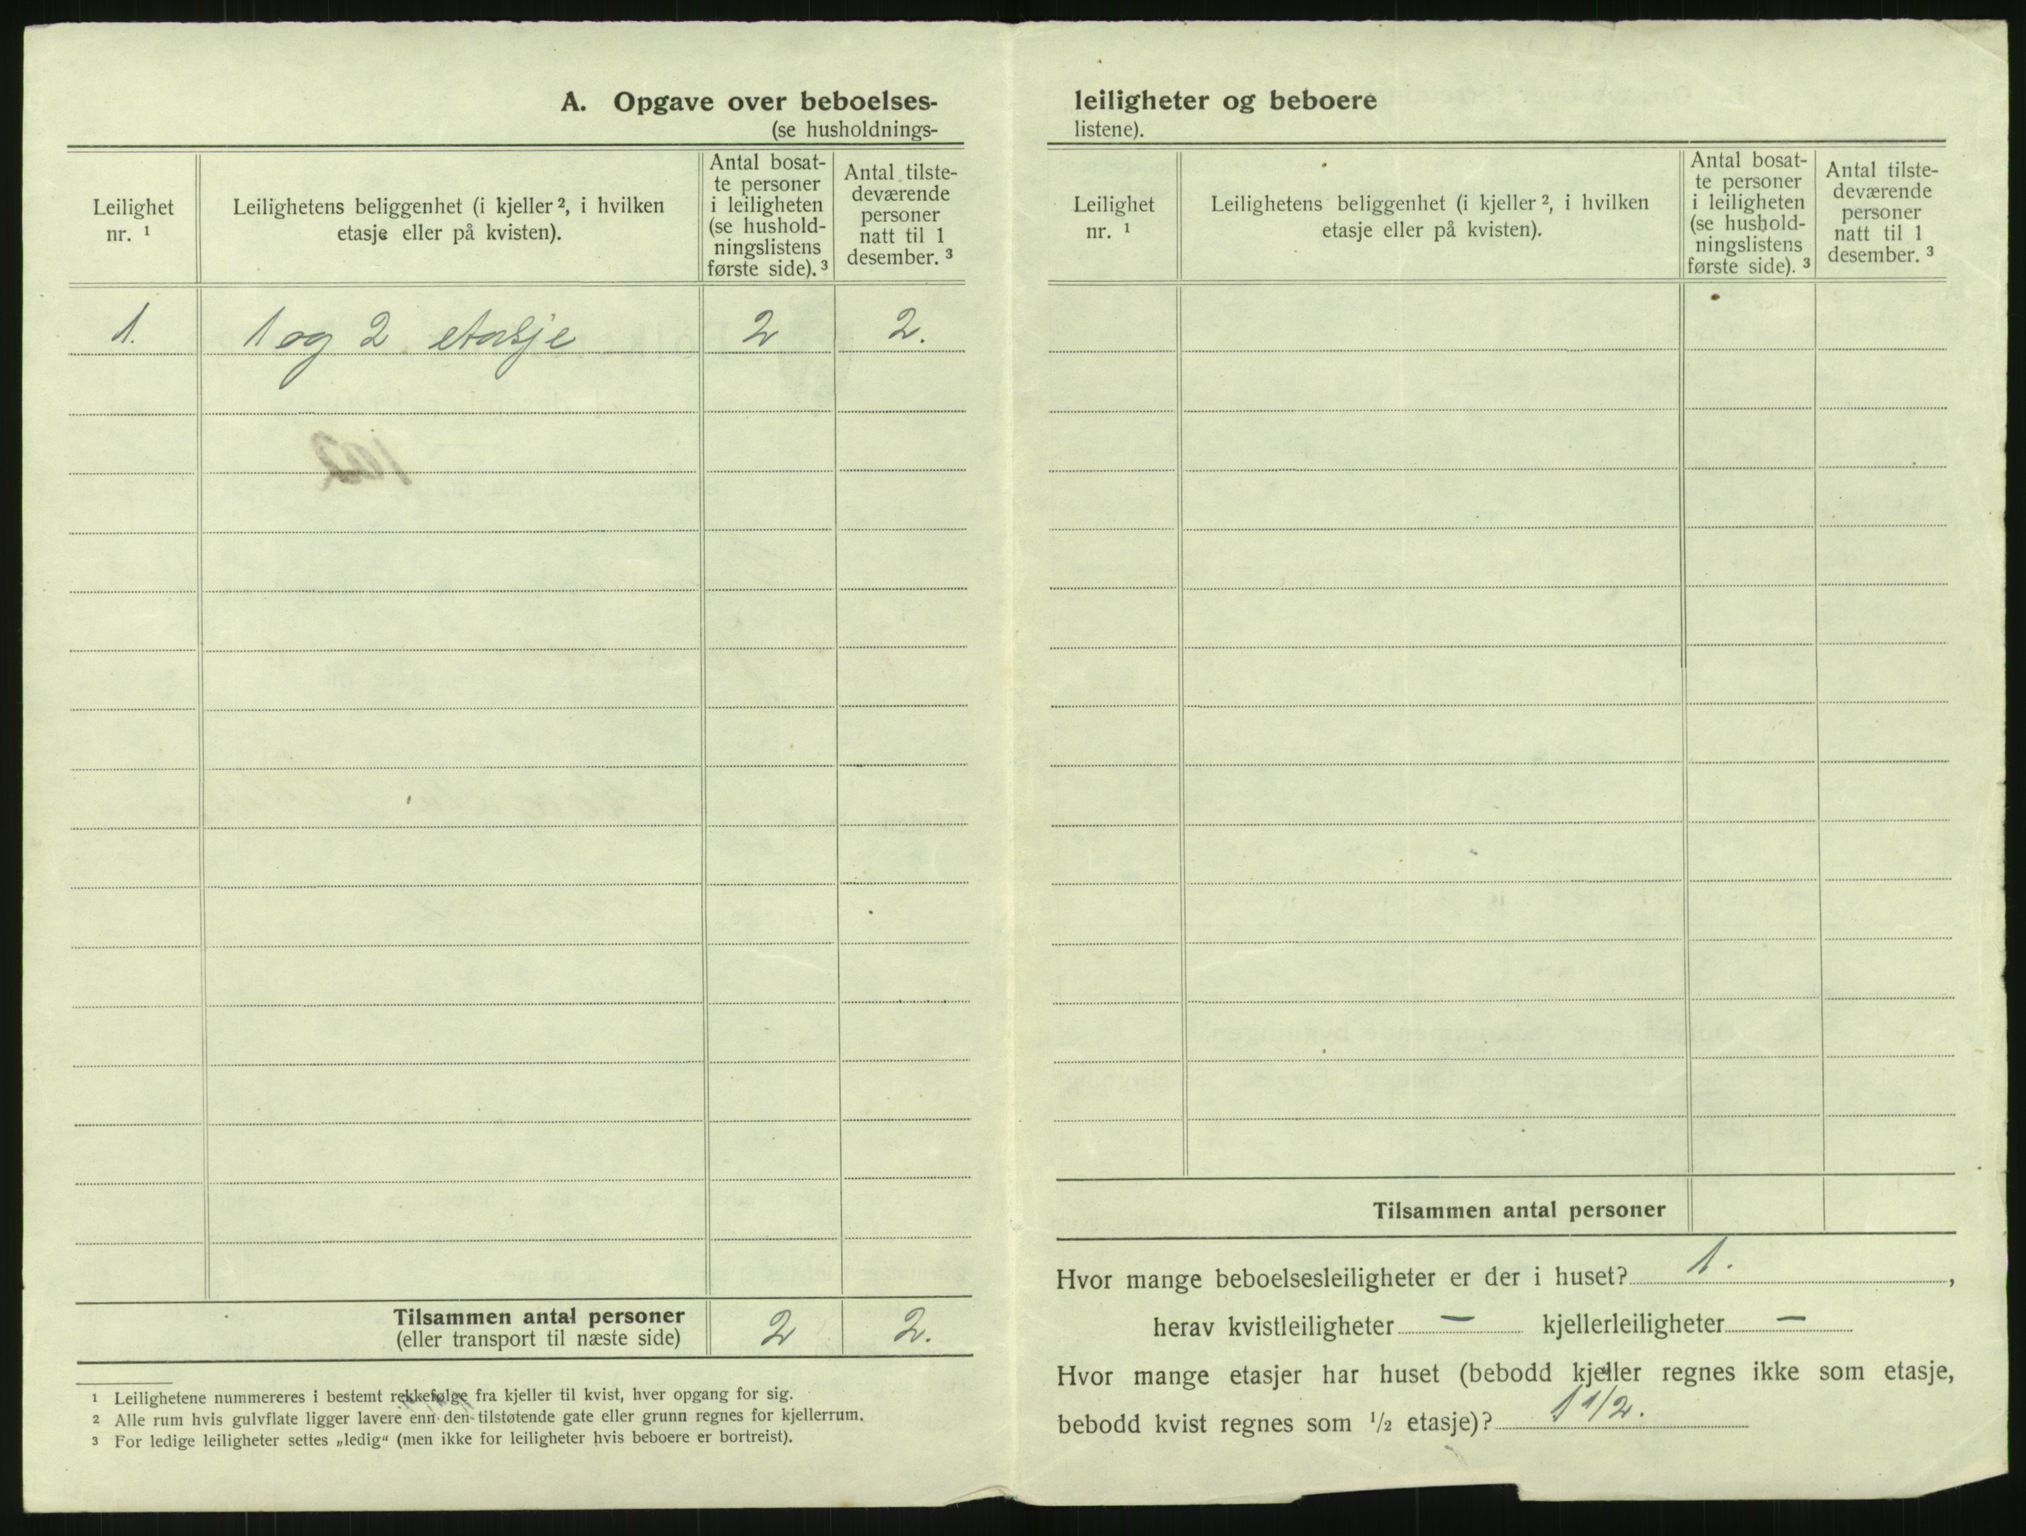 A. Opgave over beboelses-
(se husholdnings-
Leilighet
nr. ¹
Leilighetens beliggenhet (i kjeller ², i hvilken
etasje eller på kvisten).
Antal bosat-
te personer
i leiligheten
(se hushold-
ningslistens
første side). ³
Antal tilste-
deværende
personer
natt til 1
desember. ³
1. 1 og 2 etasje 2 2.
102
Tilsammen antal personer
(eller transport til næste side) 2 2.
¹ Leilighetene nummereres i bestemt rekkefølge fra kjeller til kvist, hver opgang for sig.
² Alle rum hvis gulvflate ligger lavere enn den tilstøtende gate eller grunn regnes for kjellerrum.
³ For ledige leiligheter settes „ledig“ (men ikke for leiligheter hvis beboere er bortreist).
leiligheter og beboere
listene).
Leilighet
nr. ¹
Leilighetens beliggenhet (i kjeller ², i hvilken
etasje eller på kvisten).
Antal bosat-
te personer
i leiligheten
(se hushold-
ningslistens
første side). ³
Antal tilste-
deværende
personer
natt til 1
desember. ³
Tilsammen antal personer
Hvor mange beboelsesleiligheter er der i huset? 1. ,
herav kvistleiligheter — kjellerleiligheter —
Hvor mange etasjer har huset (bebodd kjeller regnes ikke som etasje,
bebodd kvist regnes som ½ etasje)? 1 1/2.